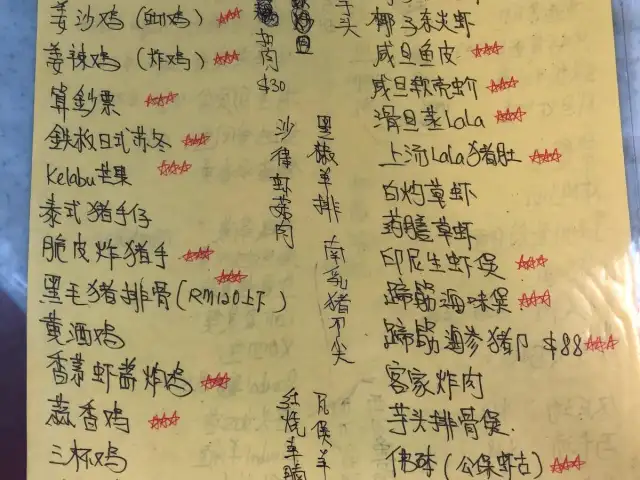 姜沙鸡（蚋鸡）
姜辣鸡（炸鸡）
算鈔票
鉄板日式苏冬
Kelabu芒果
泰式猪手仔
脆皮炸猪手
黑毛猪排骨（RM120上下）
黄酒鸡
香茅虾酱炸鸡
蒜香鸡
三杯鸡
肉
$30
沙律虾蒟肉
红烧羊腩
芋头
黑椒羊排
南乳猪不尖
瓦煲羊
椰子东炎虾
咸旦鱼皮
咸旦软壳虾
滑旦蒸LaLa
上汤LaLa猪肚
白灼草虾
药膳草虾
印尼生虾煲
蹄筋海味煲
蹄筋海参猪 $88
客家炸肉
芋头排骨煲
佛砵（公保虾古）